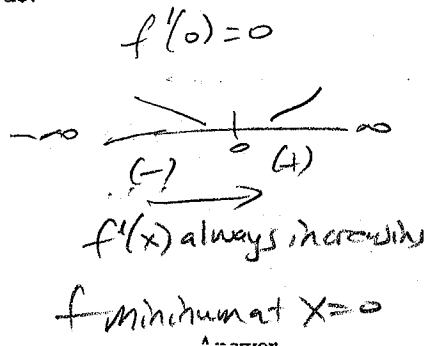 f'(0)=0
-∞ 0 ∞
(-) (+)
f'(x) always increasing
f minimum at x=0